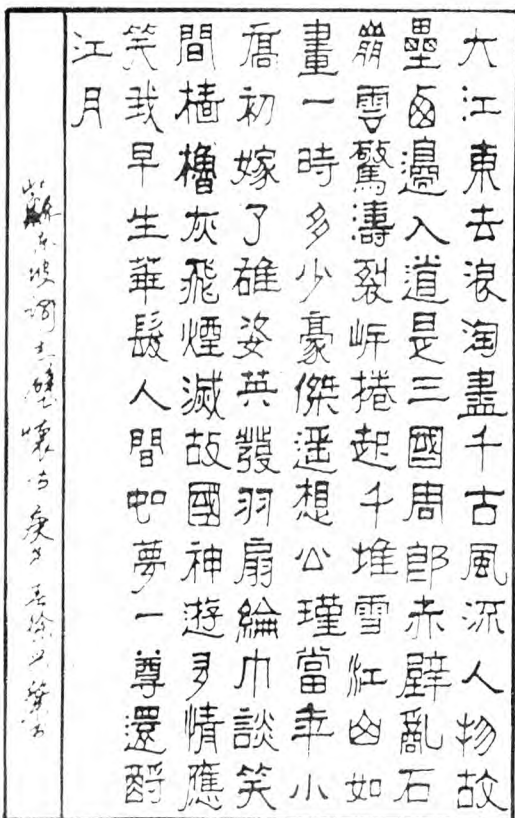 大江東去浪淘盡千古風流人物故
壘西邊人道是三國周郎赤壁亂石
崩雲驚濤裂岸捲起千堆雪江山如
畫一時多少豪傑遥想公瑾當年小
喬初嫁了雄姿英發羽扇綸巾談笑
間檣櫓灰飛煙滅故國神遊多情應
笑我早生華髮人間如夢一尊還酹
江月
蘇東坡詞赤壁懷古